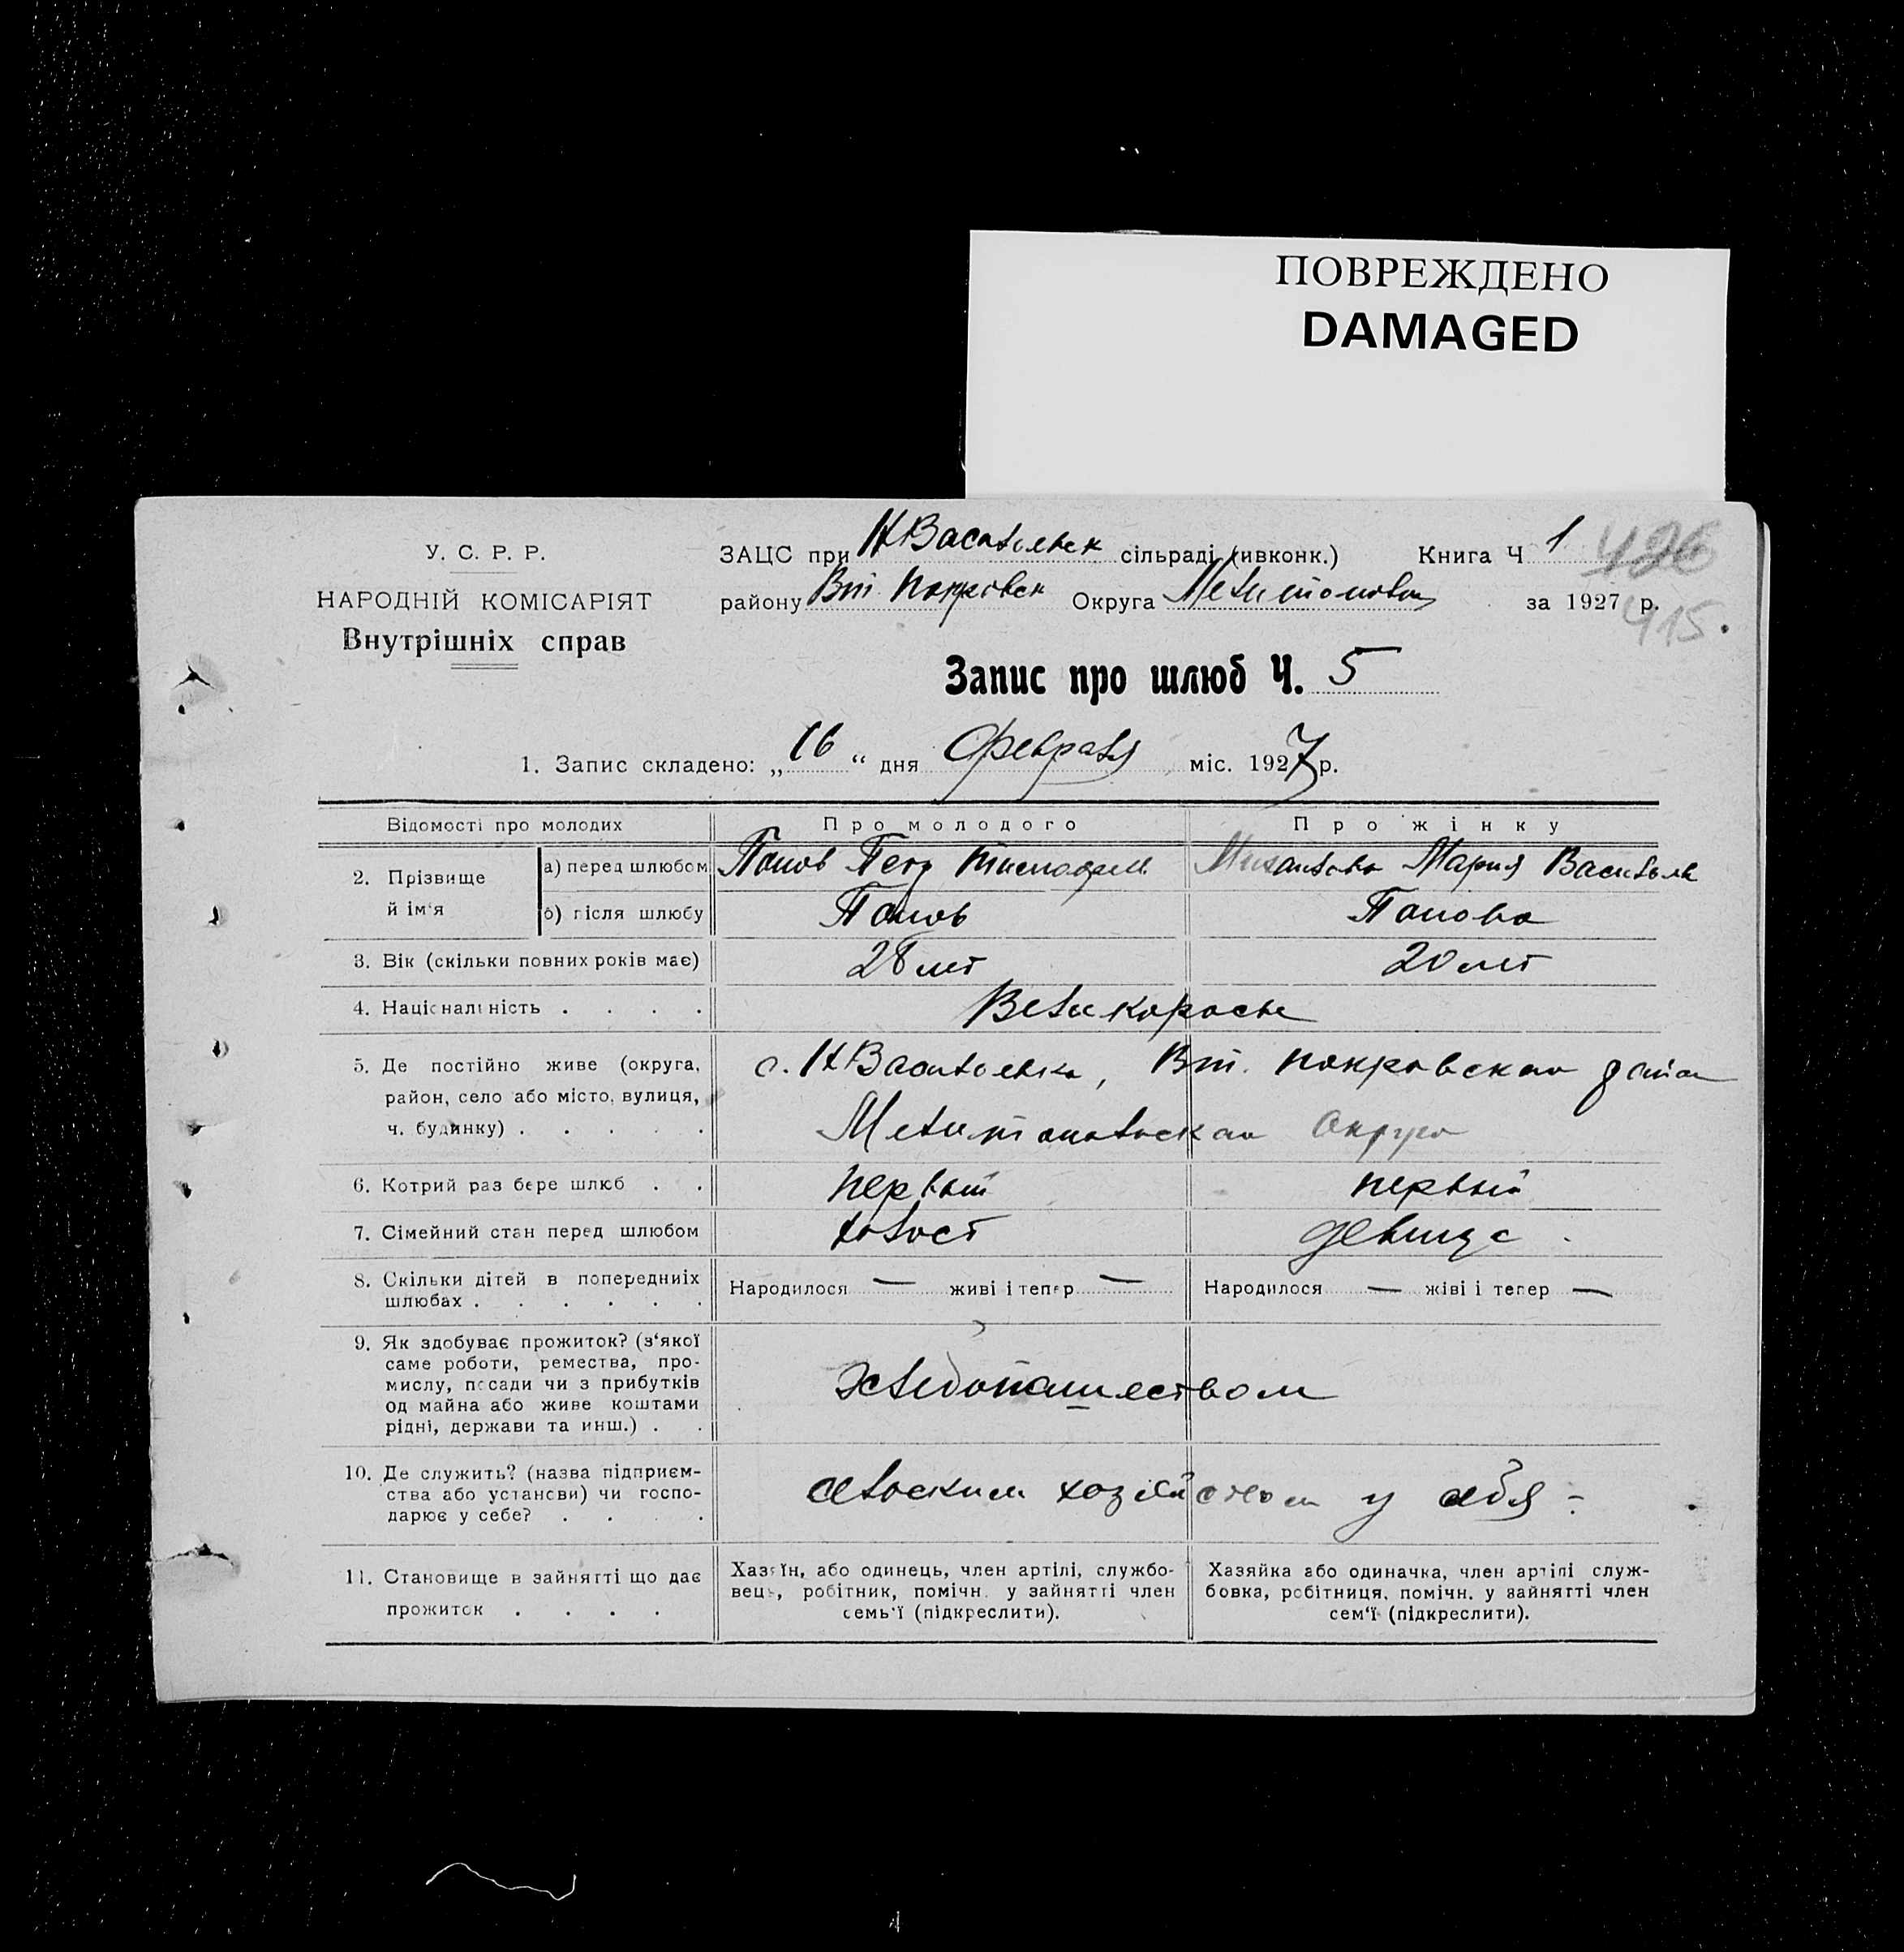 ПОВРЕЖДЕНО
DAMAGED
У. С. Р. Р.
НАРОДНІЙ КОМІСАРІЯТ
Внутрішніх справ
ЗАЦС при Н Васильевск сільраді (ивконк.) Книга Ч 1 426
району Вт. Покровск Округа за 1927 р. 415.
Запис про шлюб Ч. 5
1. Запис складено: „ 16 “ дня Февраля міс. 1927 р.
Відомості про молодих Про молодого Про жінку
2. Прізвище й ім‘я
а) перед шлюбом Попов Петр Мария Василь
б) після шлюбу Попов Попова
3. Вік (скільки повних років має) 28 лет 20 лет
4. Національність . . . . Великоросы
5. Де постійно живе (округа, с. Н Васильевка, Вт. Покровского
район, село або місто, вулиця,
ч. будинку) . . . . . Мелитопольская Округа
6. Котрий раз бере шлюб . . первый первый
7. Сімейний стан перед шлюбом холост девица
8. Скільки дітей в попередниіх Народилося — живі і тепер — Народилося — жіві і тепер —
шлюбах . . . . . .
9. Як здобуває прожиток? (з‘якої
саме роботи, ремества, про-
мислу, посади чи з прибутків хлебопашеством
од майна або живе коштами
рідні, держави та инш.) . .
10. Де служить? (назва підприєм-
ства або установи) чи госпо- сельским хозяйством у себя -
дарює у себе? . . . .
11. Становище в зайнятті що дає
прожиток . . . .
Хазяїн, або одинець, член артілі, службо-
вець, робітник, помічн. у зайнятті член
семь‘ї (підкреслити).
Хазяйка або одиначка, член артілі служ-
бовка, робітниця, помічн. у зайнятті член
сем‘ї (підкреслити).